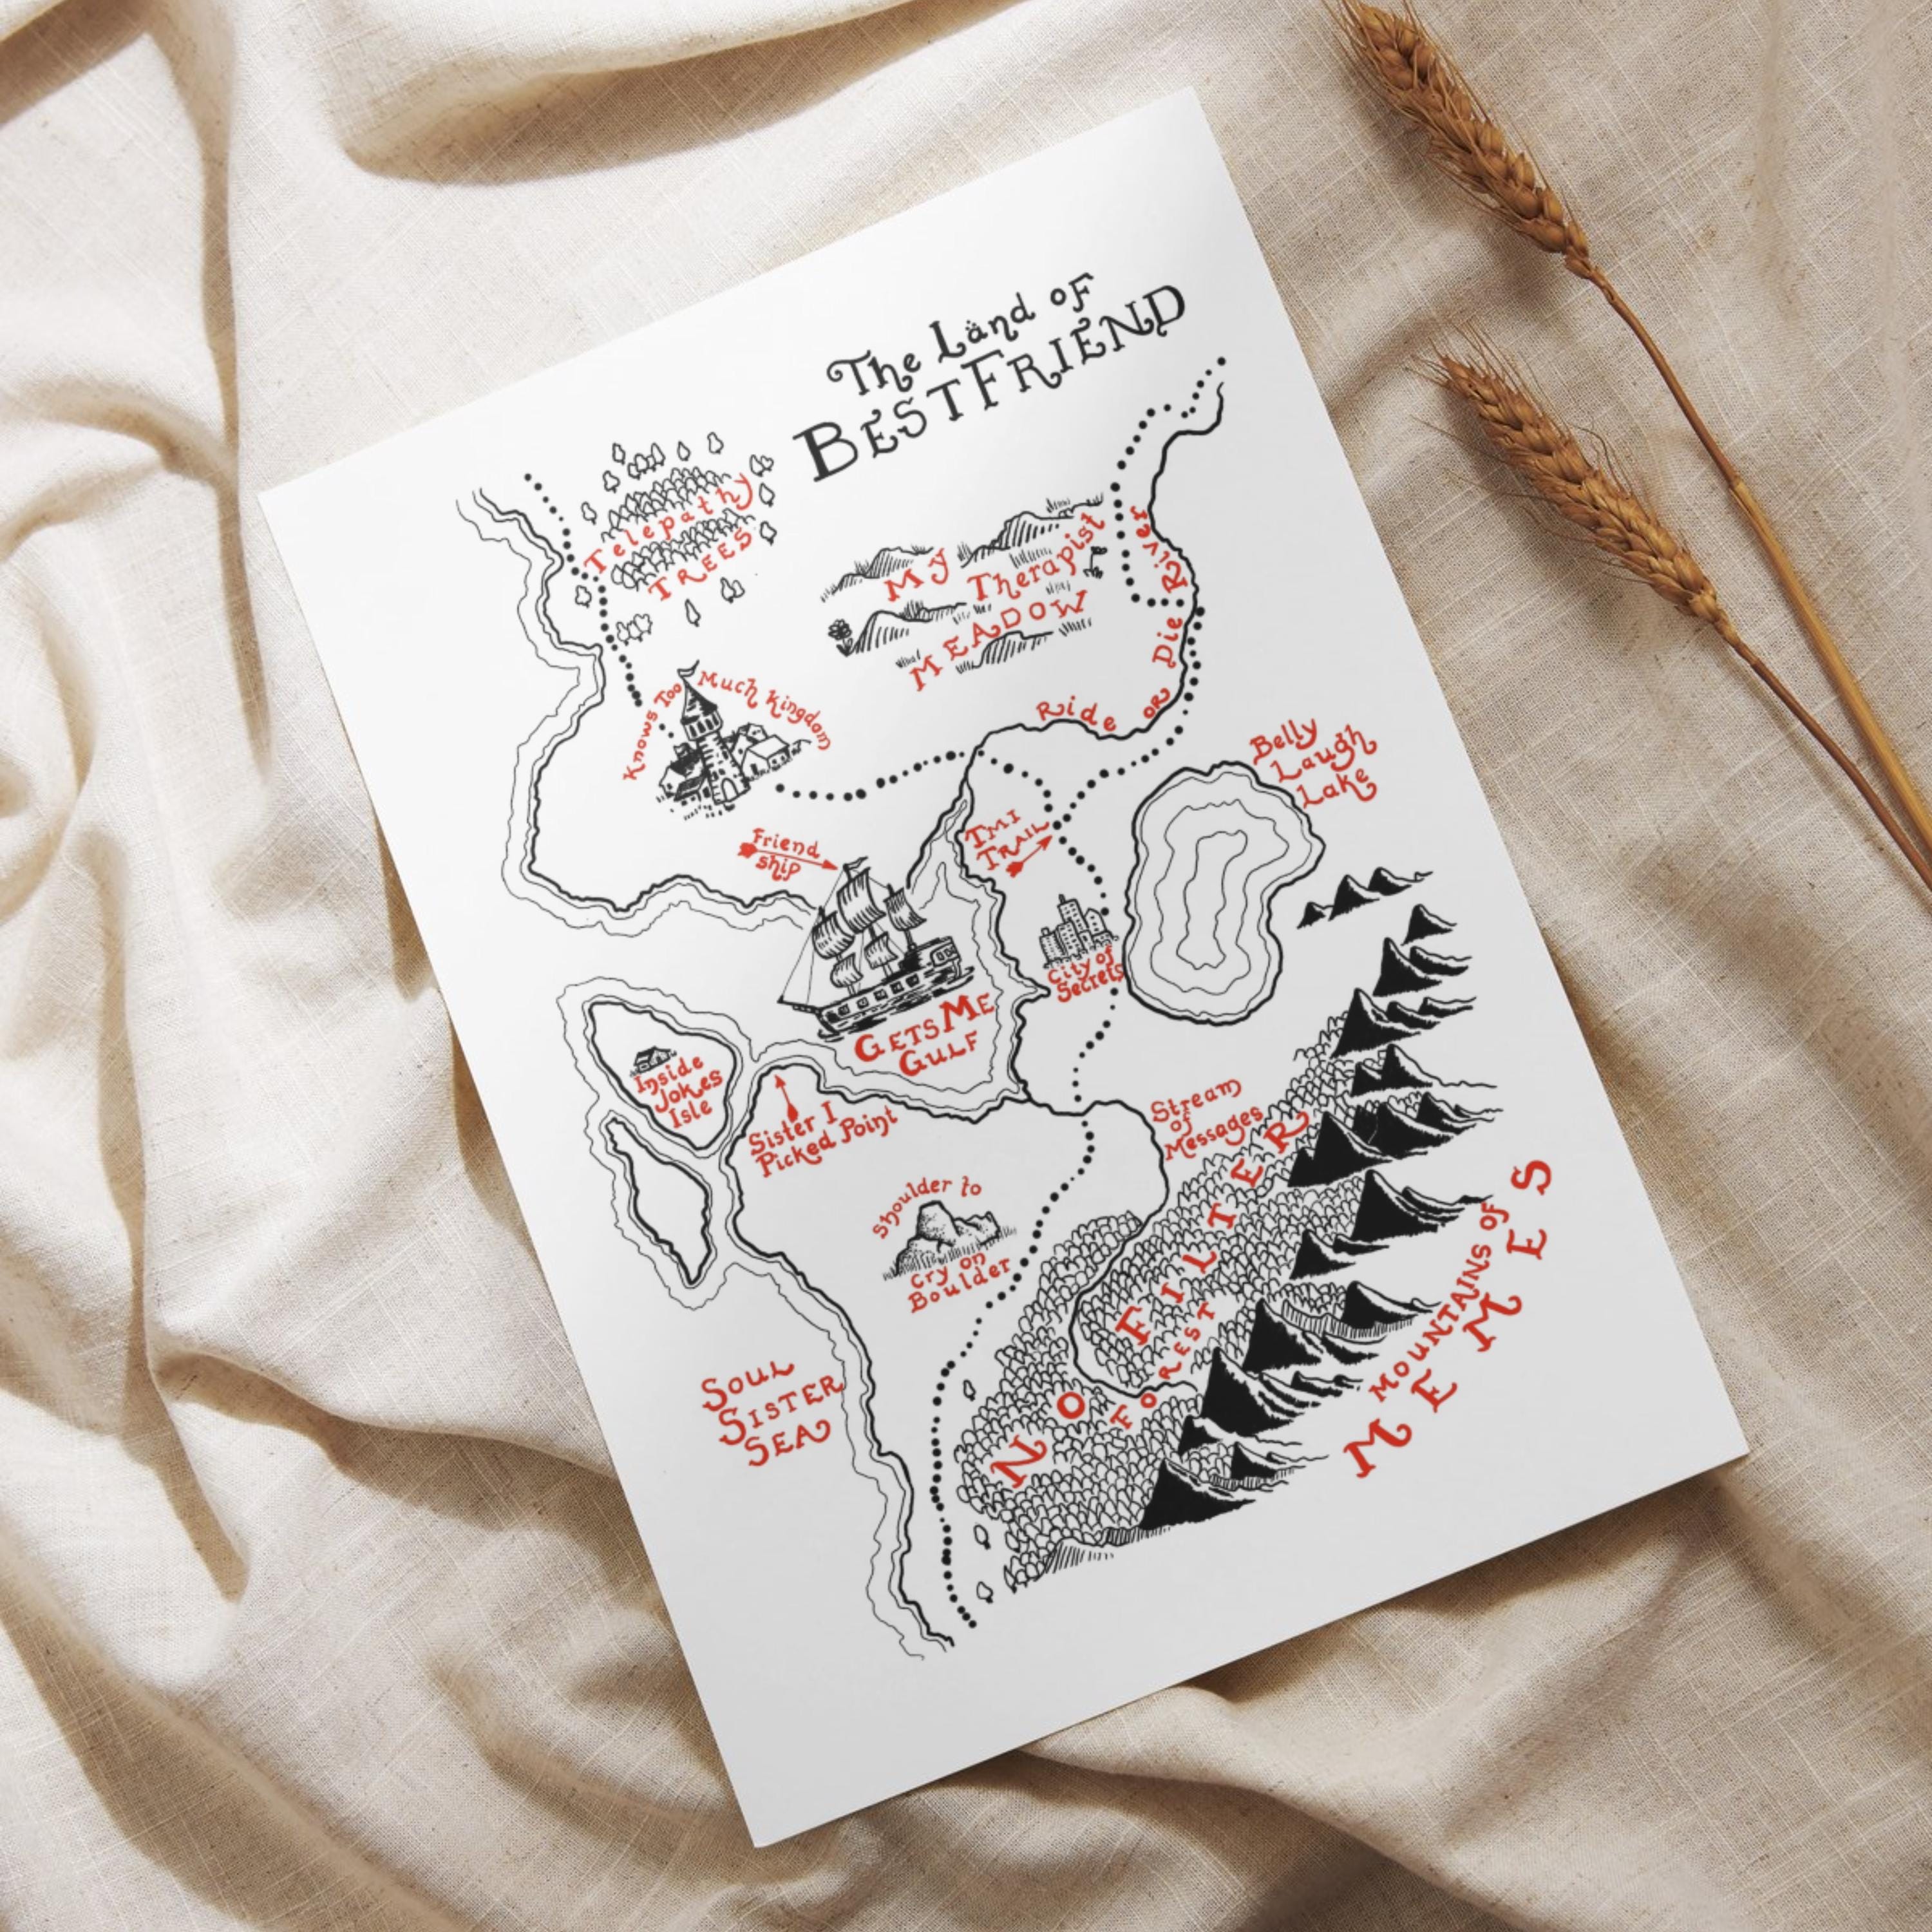 The Länd of
BESTFRIEND
Telepathy
TREES
My Therapist
MEADOW
Ride OR Die River
Knows Too Much Kingdom
Belly
Laugh
Lake
Friend
ship
TMI
TRAIL
City of
Secrets
GETS ME
GULF
Inside
Jokes
Isle
Sister I
Picked Point
Stream
of
Messages
Shoulder to
Cry on
Boulder
NO FILTER
FOREST
MOUNTAINS OF
MEMES
SOUL
SISTER
SEA